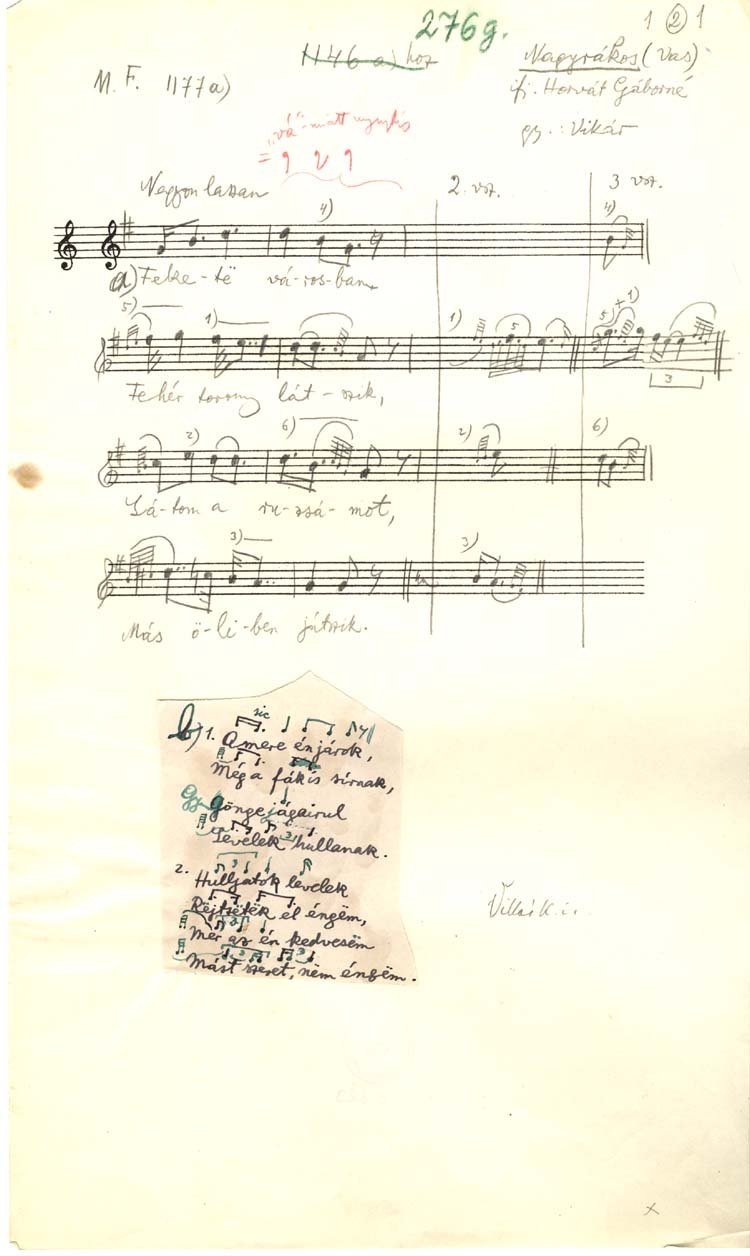 276g.
1 2 1
1146 a) hoz
Nagyrákos (Vas)
M. F. 1177a)
ifj. Horvát Gáborné
gy.: Vikár
„vá"-miatt
=
Nagyon lassan
2. vsz.
3 vsz.
4)
4)
a) Feke-të vá-ros-ban
5)
1)
1)
5
5
+1)
3
Fehér torony lát-szik,
2)
6)
2)
6)
Lá-tom a ru-zsá-mot,
3)
3)
Más ö-li-ben játszik.
sic
b) 1. Amere énjárok,
Még a fák is sírnak,
Gyönge jágairul
3
Levelek hullanak.
3
2. Hulljatok levelek
Rëjtsetëk el éngëm,
3
Mer az én kedvesëm
3
3
Mást szeret, nëm éngëm.
x